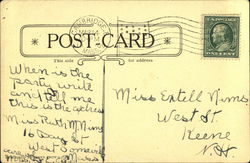 CAMBRIDGE
POST CARD
This side
for address
When is the
party write
and tell me
this is the adress
Miss Ruth M Mims
16 Day St
West Somerville
care Mass
Miss Extell Mims
West St.
Keene
N.H